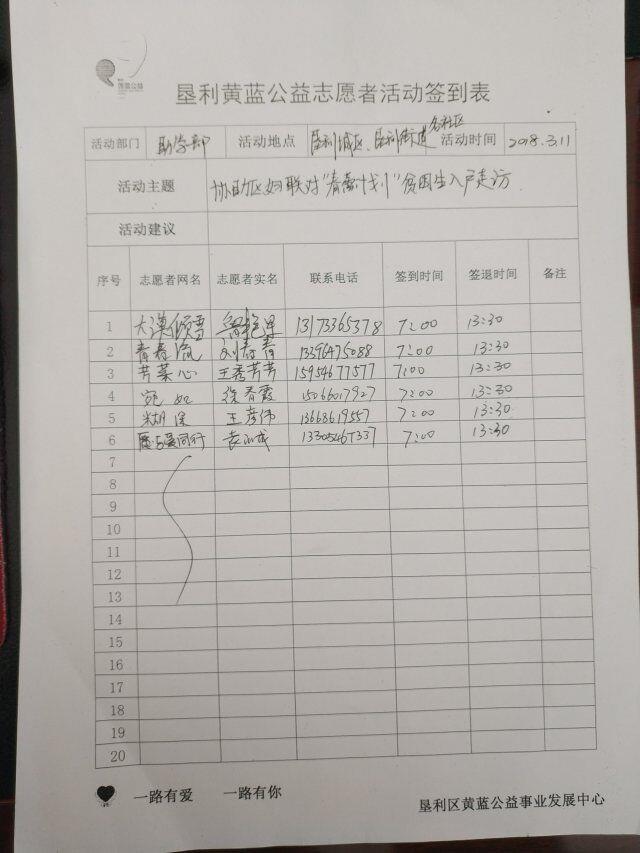 黄蓝公益
垦利黄蓝公益志愿者活动签到表
活动部门 助学部 活动地点 垦利城区、垦利街道各社区 活动时间 2018.3.11
活动主题 协助区妇联对"春蕾计划"贫困生入户走访
活动建议
序号 志愿者网名 志愿者实名 联系电话 签到时间 签退时间 备注
1 大漠倾雪 13173365378 7:00 13:30
2 青春流 刘春青 13396475088 7:00 13:30
3 芹菜心 王秀芳芳 15954677577 7:00 13:30
4 宛如 徐春霞 15066017927 7:00 13:30
5 王彦伟 13668619557 7:00 13:30
6 愿与爱同行 13305467337 7:00 13:30
7
8
9
10
11
12
13
14
15
16
17
18
19
20
一路有爱 一路有你
垦利区黄蓝公益事业发展中心